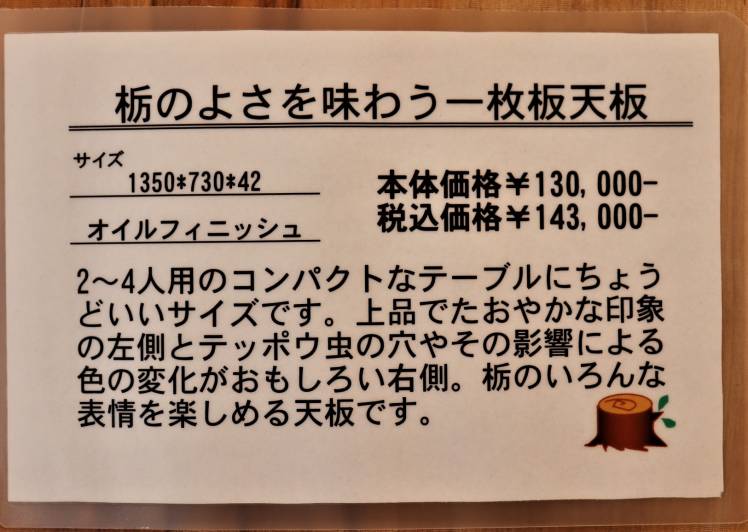 栃のよさを味わう一枚板天板
サイズ
1350*730*42
本体価格￥130,000-
税込価格￥143,000-
オイルフィニッシュ
2～4人用のコンパクトなテーブルにちょう
どいいサイズです。上品でたおやかな印象
の左側とテッポウ虫の穴やその影響による
色の変化がおもしろい右側。栃のいろんな
表情を楽しめる天板です。